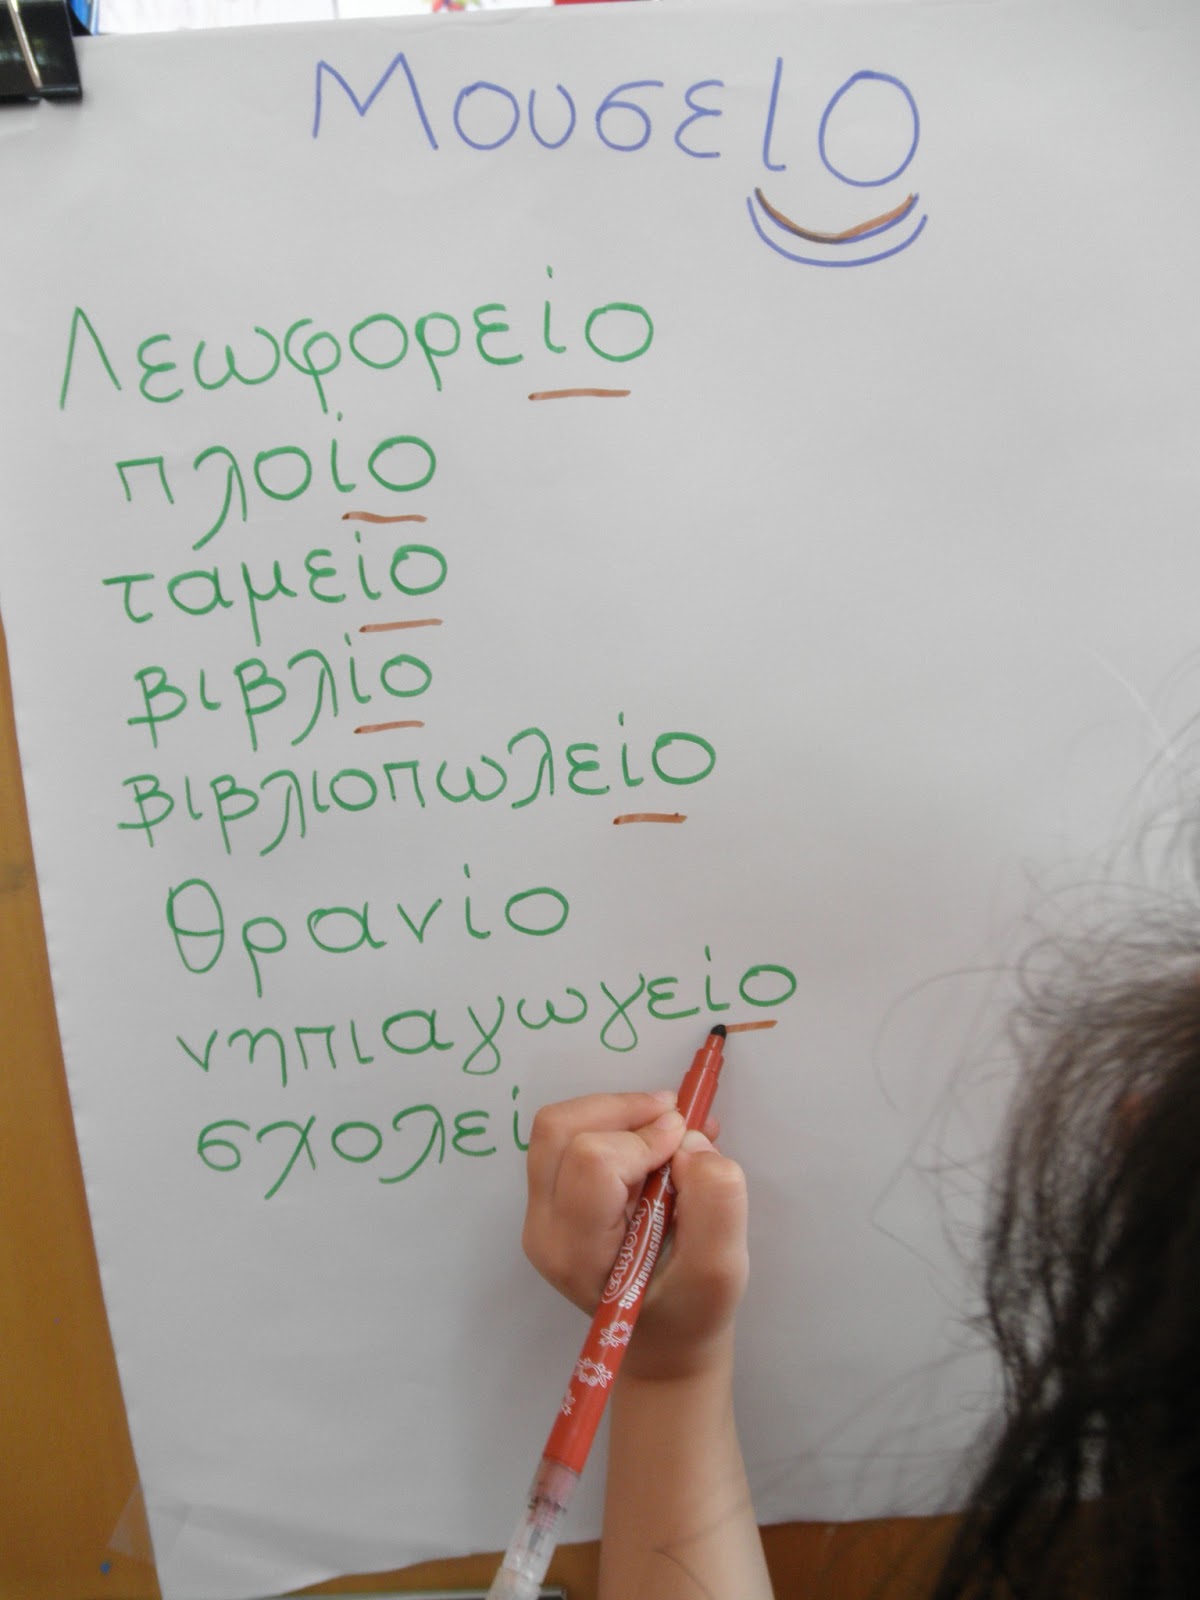 Μουσειο
Λεωφορείο
πλοίο
ταμείο
βιβλίο
βιβλιοπωλείο
θρανίο
νηπιαγωγείο
σχολεί
CARIOCA
SUPERWASHABLE